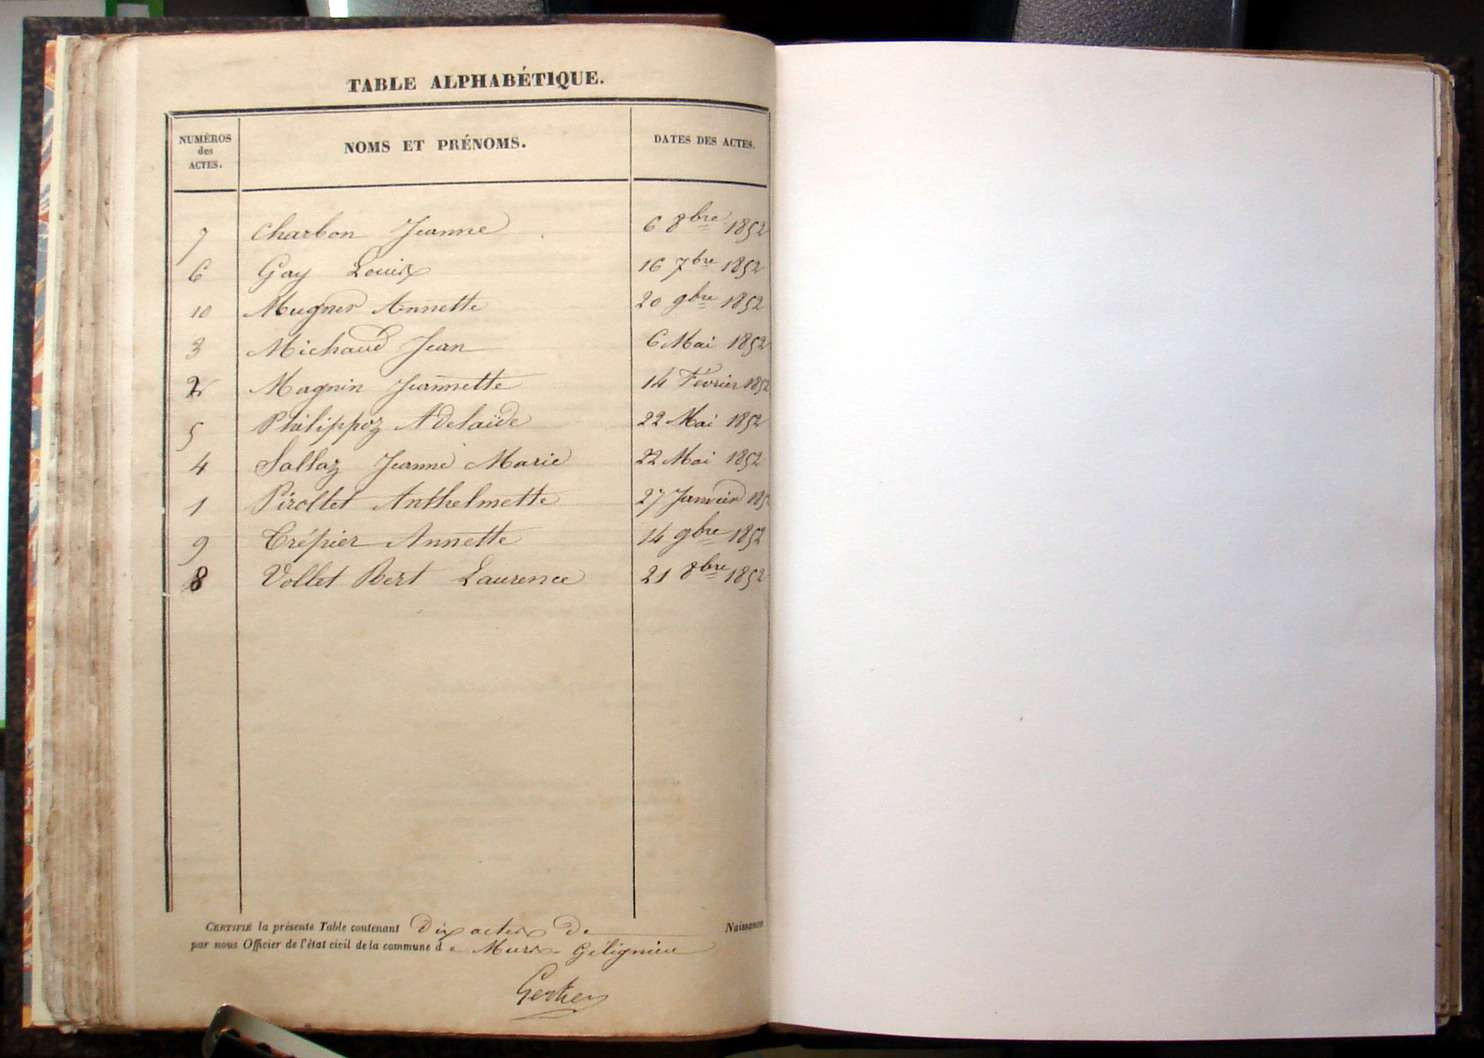 TABLE ALPHABÉTIQUE.
NUMÉROS des ACTES. NOMS ET PRÉNOMS. DATES DES ACTES.
7 Charbon Jeanne 6 8bre 1852
6 Gay Louis 16 7bre 1852
10 Mugner Annette 20 9bre 1852
3 Michaud Jean 6 Mai 1852
2 Magnin Jeannette 14 Février 1852
5 Philippoz Adelaïde 22 Mai 1852
4 Sallaz Jeanne Marie 22 Mai 1852
1 Pirollet Anthelmette 27 Janvier 185
9 Trépier Annette 14 9bre 1852
8 Vollet Bert Laurence 21 8bre 1852
CERTIFIÉ la présente Table contenant Dix actes De Naissances
par nous Officier de l'état civil de la commune de Murs Gelignieu